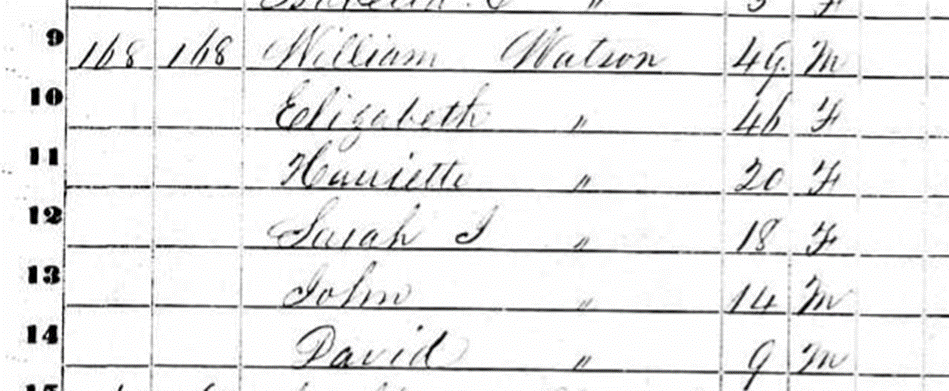 9 168 168 William Watson 49 M
10 Elizabeth " 46 F
11 Harriette " 20 F
12 Sarah J " 18 F
13 John " 14 M
14 David " 9 M